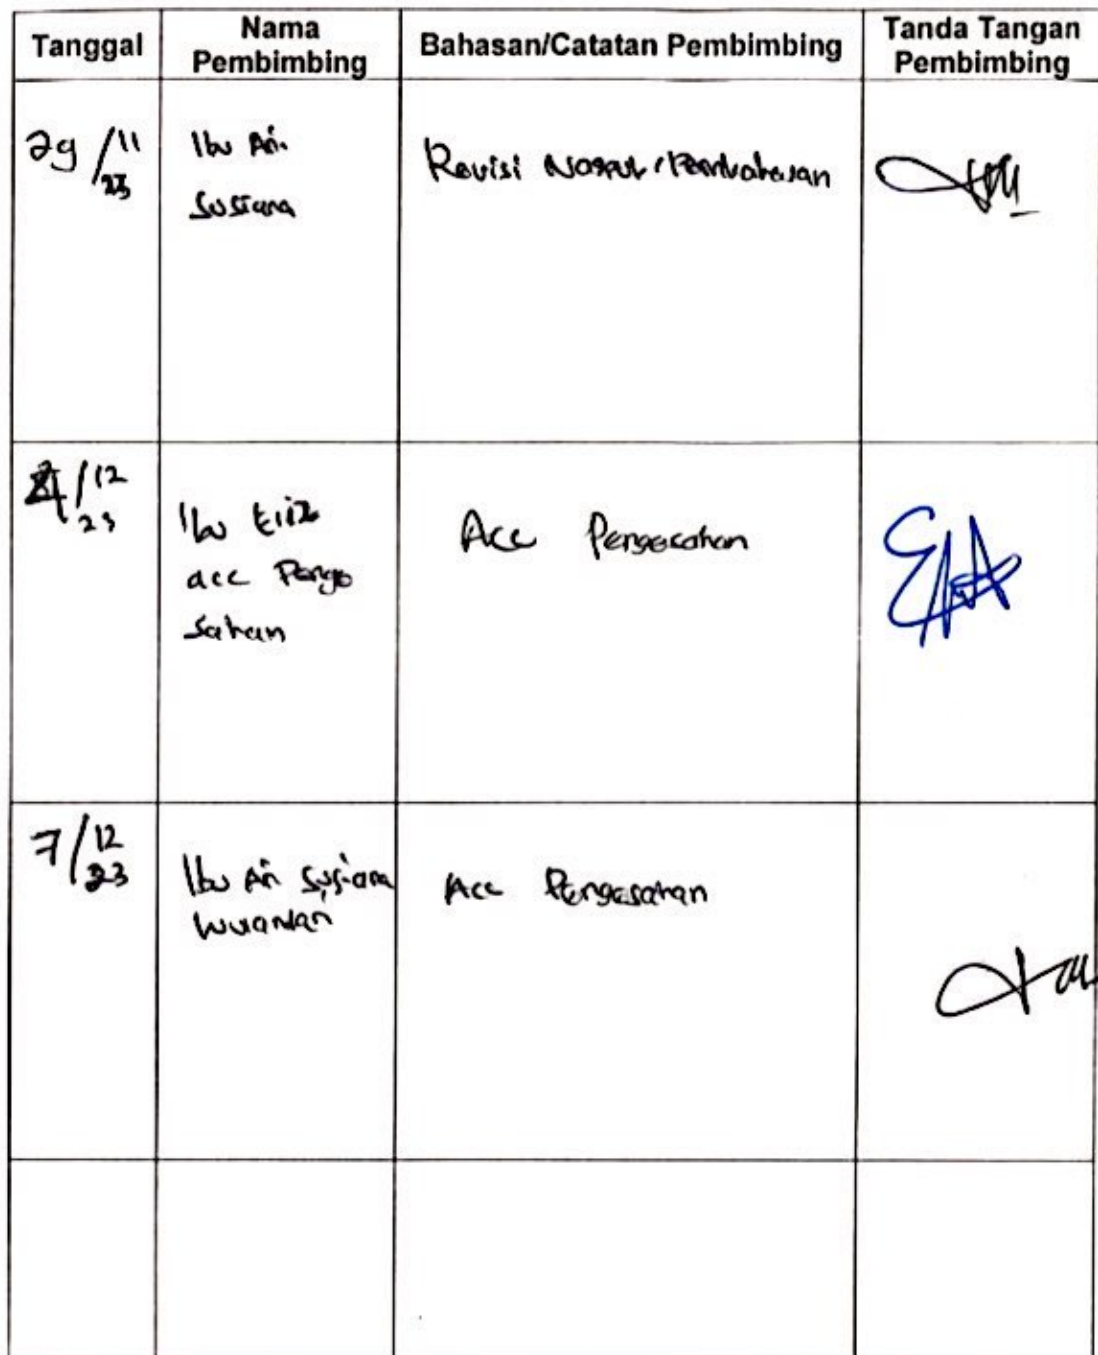 Tanggal
Nama
Pembimbing
Bahasan/Catatan Pembimbing
Tanda Tangan
Pembimbing
29/11
23
Ibu Ari
Susiana
Revisi Naspub, Pembahasan
4/12
23
Ibu
acc Penge
sahan
Acc Pengesahan
7/12
23
Ibu Ari Susiana
Wulandari
Acc Pengesahan